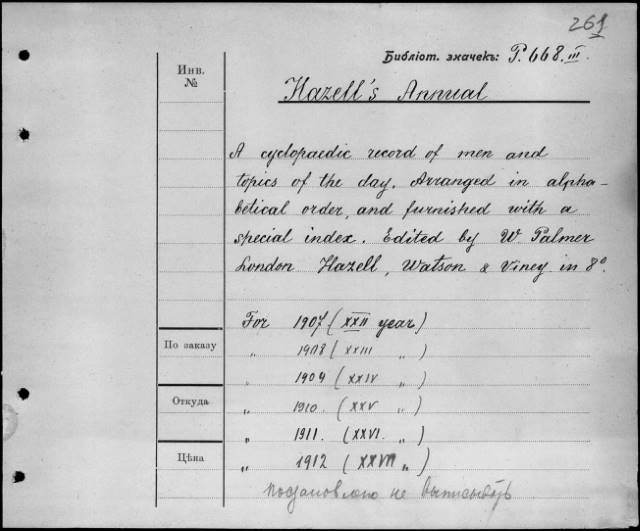 261
Библіот. значекъ: P. 668. III.
Инв.
№
Hazell's Annual
A cyclopaedic record of men and
topics of the day. Arranged in alpha-
betical order, and furnished with a
special index. Edited by W. Palmer
London Hazell, Watson & Viney in 8°.
For 1907 (XXII year)
По заказу
„ 1908 (XXIII „ )
„ 1909 (XXIV „ )
Откуда
„ 1910. (XXV „ )
„ 1911. (XXVI. „ )
Цѣна
„ 1912 (XXVII „ )
постановлено не выписывать